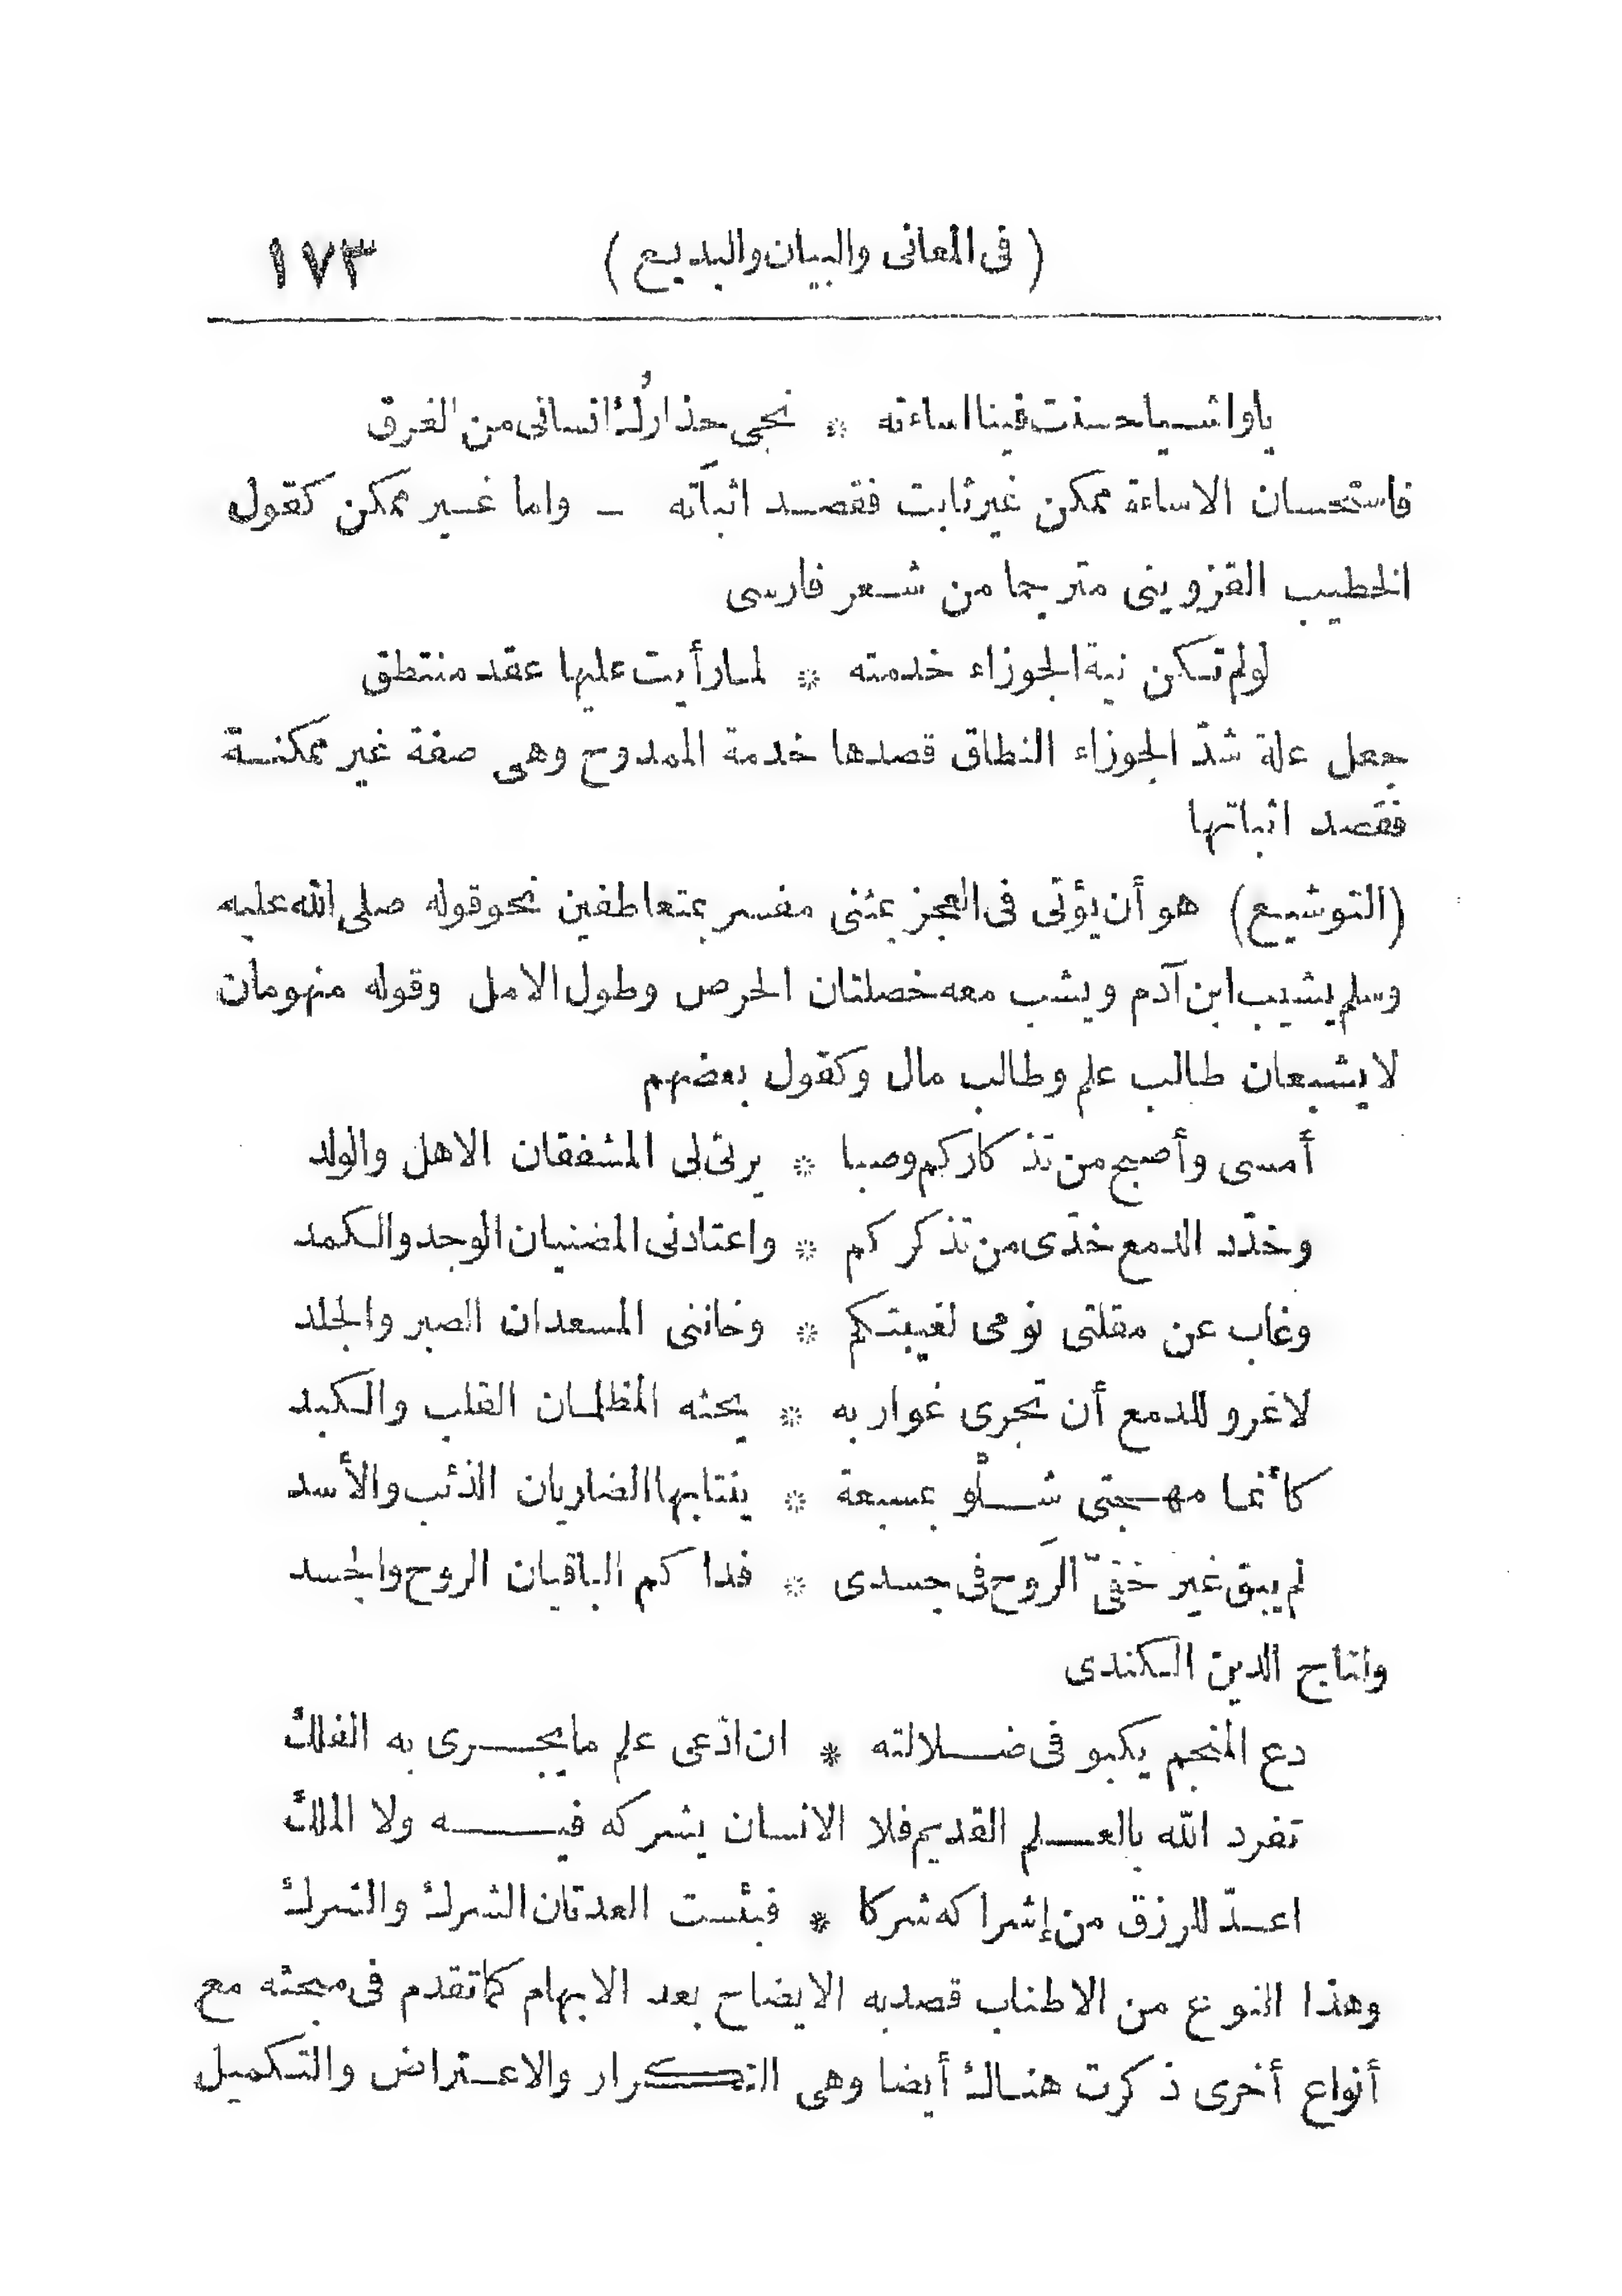 (فى المعانى والبيان والبديع) ١٧٣
يا واشيا حسنت فينا اساءته * نجى حذارُك انسانى من الغرق
فاستحسان الاساءة ممكن غير ثابت فقصد اثباته – واما غير ممكن كقول
الخطيب القزوينى مترجما من شعر فارسى
لو لم تكن نية الجوزاء خدمته * لما رأيت عليها عقد منتطق
جعل علة شدّ الجوزاء النطاق قصدها خدمة الممدوح وهى صفة غير ممكنة
فقصد اثباتها
(التوشيع) هو أن يؤتى فى العجز بمثنى مفسر بمتعاطفين نحو قوله صلى الله عليه
وسلم يشيب ابن آدم ويشب معه خصلتان الحرص وطول الامل وقوله منهومان
لا يشبعان طالب علم وطالب مال وكقول بعضهم
أمسى وأصبح من تذكاركم وصبا * يرثى لى المشفقان الاهل والولد
وخدّد الدمع خدّى من تذكركم * واعتادنى المضنيان الوجد والكمد
وغاب عن مقلتى نومى لغيبتكم * وخاننى المسعدان الصبر والجلد
لا غرو للدمع أن تجرى غواربه * يحثه المظلمان القلب والكبد
كأنما مهجتى شلْو بمسبعة * ينتابها الضاريان الذئب والأسد
لم يبق غير خفىّ الروح فى جسدى * فدا كم الباقيان الروح والجسد
ولتاج الدين الكندى
دع المنجم يكبو فى ضلالته * ان ادّعى علم ما يجرى به الفلك
تفرد الله بالعلم القديم فلا الانسان يشركه فيه ولا الملك
اعدّ للرزق من إشراكه شركا * فبئست العدتان الشرك والشرك
وهذا النوع من الاطناب قصد به الايضاح بعد الابهام كما تقدم فى مبحثه مع
أنواع أخرى ذكرت هنالك أيضا وهى التكرار والاعتراض والتكميل